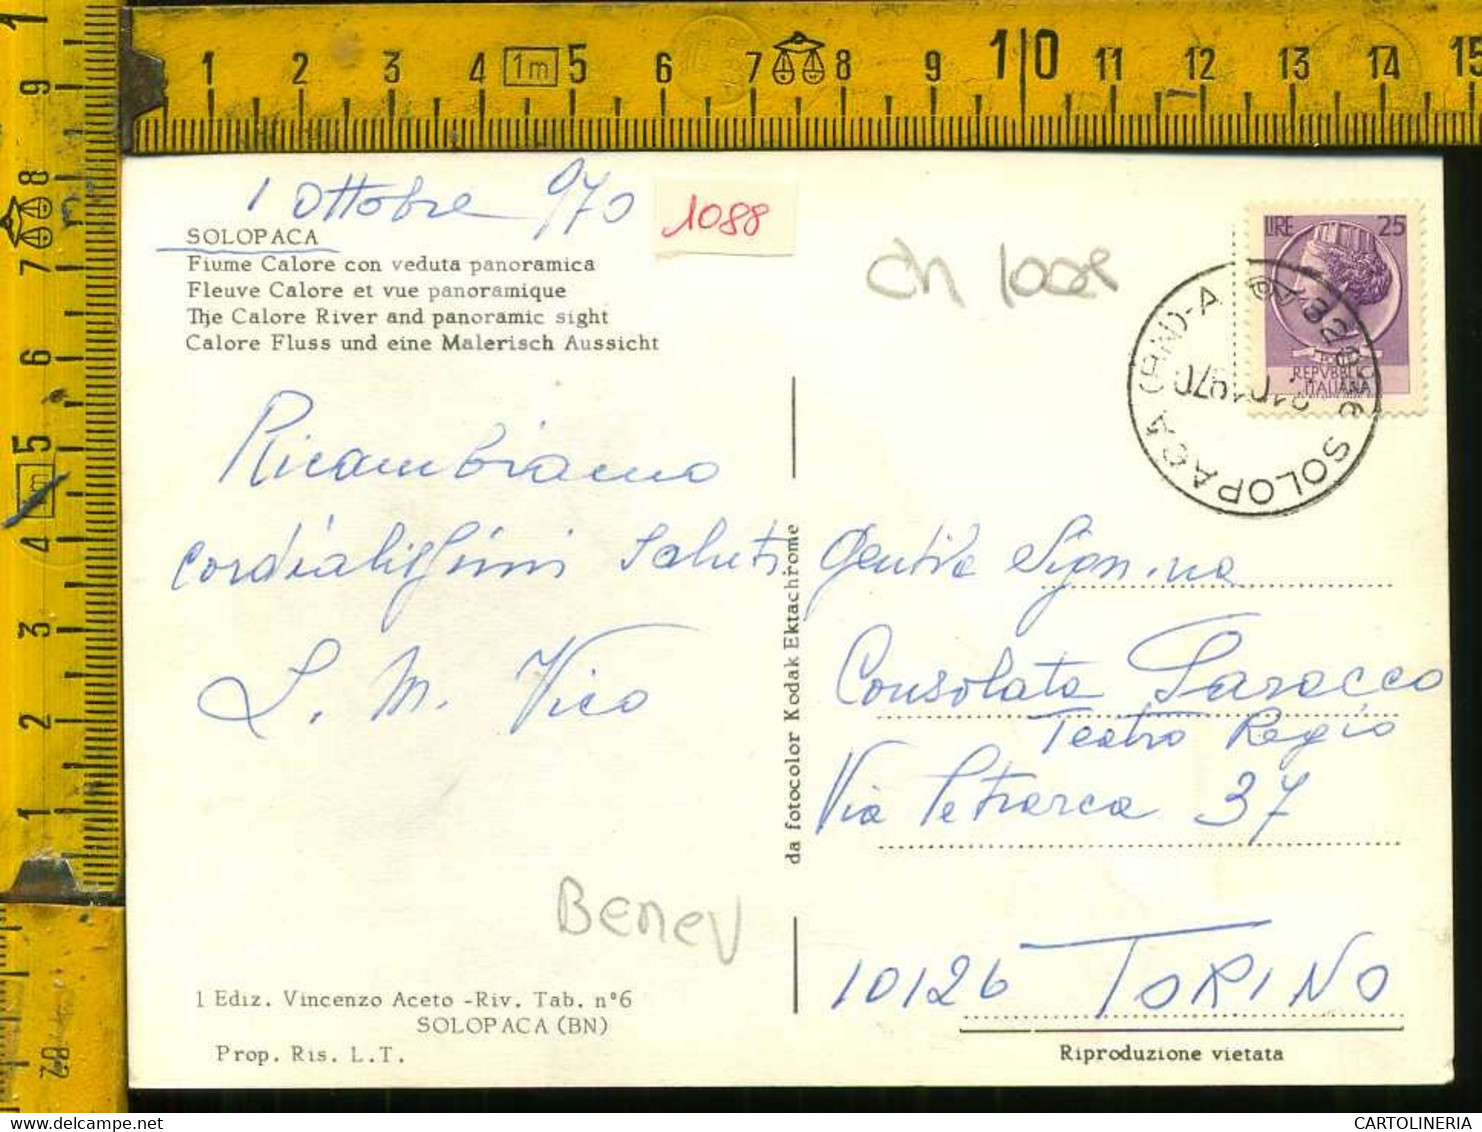 1 2 3 4 1m 5 6 7 8 9 10 11 12 13 14 15
1 9 8 7 6 5 1m 4 3 2 1
82
1 Ottobre 970
1088
SOLOPACA
Fiume Calore con veduta panoramica
Fleuve Calore et vue panoramique
The Calore River and panoramic sight
Calore Fluss und eine Malerisch Aussicht
Ch 1008
LIRE 25
REPVBBLICA
ITALIANA
SOLOPACA
1970
Ricambiamo
cordialissimi saluti
L. M. Vico
da fotocolor Kodak Ektachrome
Gentile Signina
Consolata Saracco
Teatro Regio
Via Petrarca 37
10126 TORINO
Benev
1 Ediz. Vincenzo Aceto - Riv. Tab. n°6
SOLOPACA (BN)
Prop. Ris. L.T.
Riproduzione vietata
CARTOLINERIA